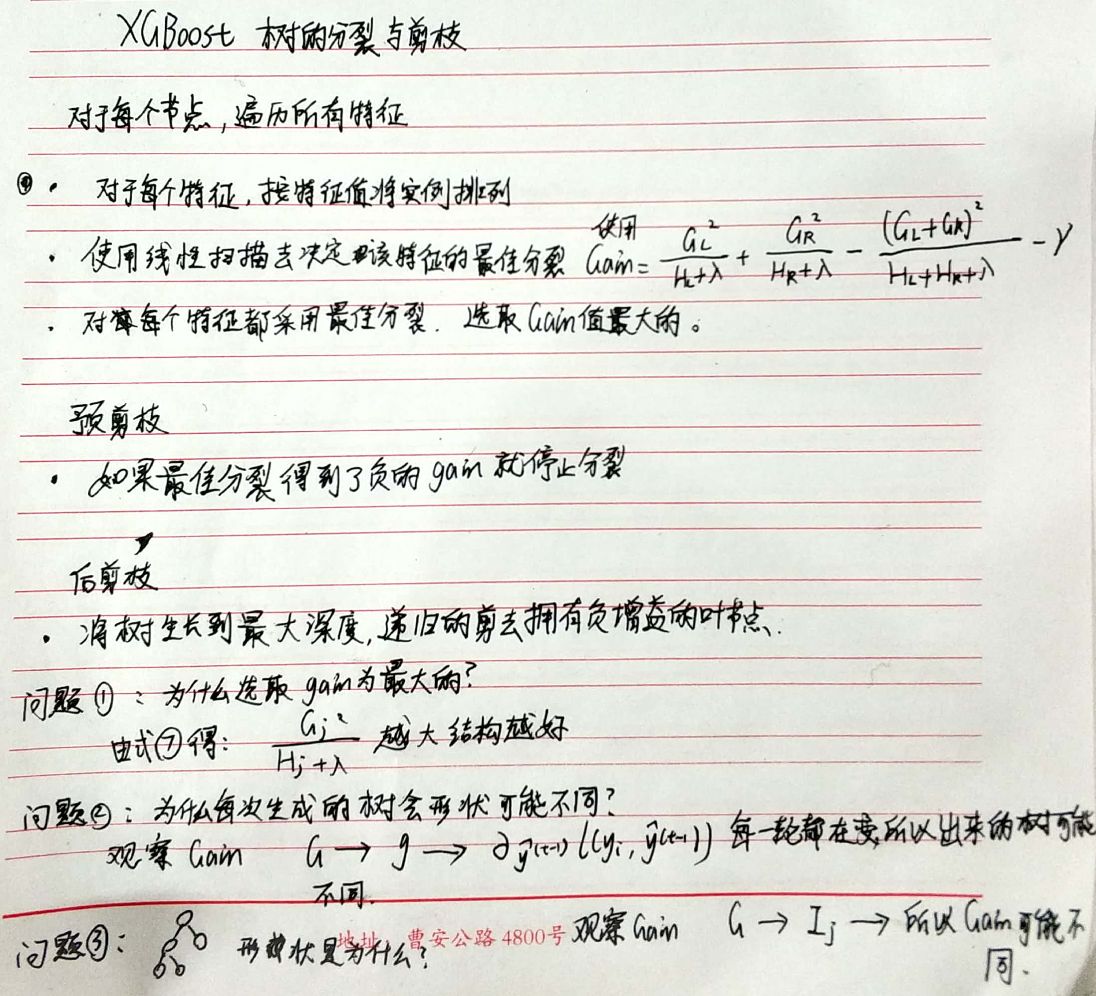 XGBoost 树的分裂与剪枝
对于每个节点,遍历所有特征
· 对于每个特征,按特征值将实例排列
· 使用线性扫描去决定该特征的最佳分裂 使用 Gain = G_L²/(H_L+λ) + G_R²/(H_R+λ) − (G_L+G_R)²/(H_L+H_R+λ) − γ
· 对每个特征都采用最佳分裂. 选取Gain值最大的。
预剪枝
· 如果最佳分裂得到了负的gain就停止分裂
后剪枝
· 将树生长到最大深度,递归的剪去拥有负增益的叶节点.
问题①:为什么选取gain为最大的?
由式⑦得: G_j²/(H_j+λ) 越大结构越好
问题②:为什么每次生成的树会形状可能不同?
观察Gain G → g → ∂ŷ(t-1) l(y_i, ŷ(t-1)) 每一轮都在变,所以出来的树可能
不同.
问题③: 形状是为什么? 观察Gain G → I_j → 所以Gain可能不
同.
地址:曹安公路4800号